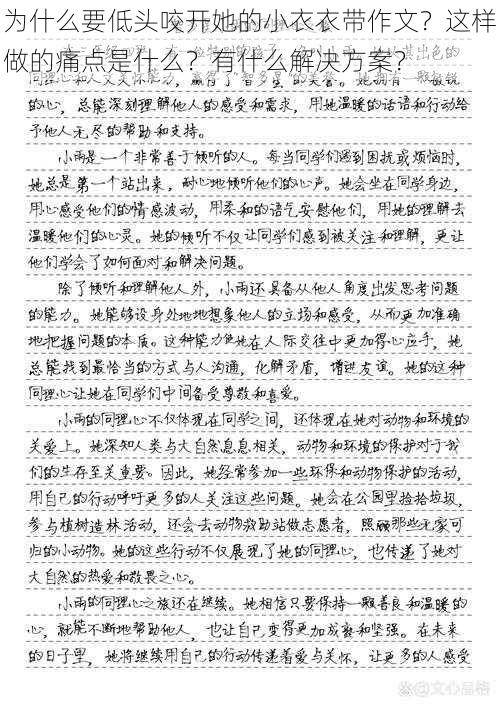 为什么要低头咬开她的小衣衣带作文？这样
做的痛点是什么？有什么解决方案？
同理心和人文关怀能力，赢得了“智多星”的美誉。她拥有一颗敏锐
的心，总能深刻理解他人的感受和需求，用她温暖的话语和行动给
予他人无尽的帮助和支持。
小雨是一个非常善于倾听的人。每当同学们遇到困扰或烦恼时，
她总是第一个站出来，耐心地倾听他们的心声。她会坐在同学身边，
用心感受他们的情感波动，用柔和的语气安慰他们，用她的理解去
温暖他们的心灵。她的倾听不仅让同学们感到被关注和理解，更让
他们学会了如何面对和解决问题。
除了倾听和理解他人外，小雨还具备从他人角度出发思考问题
的能力。她能够设身处地地想象他人的立场和感受，从而更加准确
地把握问题的本质。这种能力使她在人际交往中更加得心应手，她
总能找到最恰当的方式与人沟通，化解矛盾，增进友谊。她的这种
同理心让她在同学们中间备受尊敬和喜爱。
小雨的同理心不仅体现在同学之间，还体现在她对动物和环境的
关爱上。她深知人类与大自然息息相关，动物和环境的保护对于我
们的生存至关重要。因此，她经常参加一些环保和动物保护的活动，
用自己的行动呼吁更多的人关注这些问题。她会在公园里捡拾垃圾，
参与植树造林活动，还会去动物救助站做志愿者，照顾那些无家可
归的小动物。她的这些行动不仅展现了她的同理心，也传递了她对
大自然的热爱和敬畏之心。
小雨的同理心之旅还在继续。她相信只要保持一颗善良和温暖的
心，就能不断地帮助他人，也让自己变得更加成熟和坚强。在未来
的日子里，她将继续用自己的行动传递着爱与关怀，让更多的人感受
文心品格